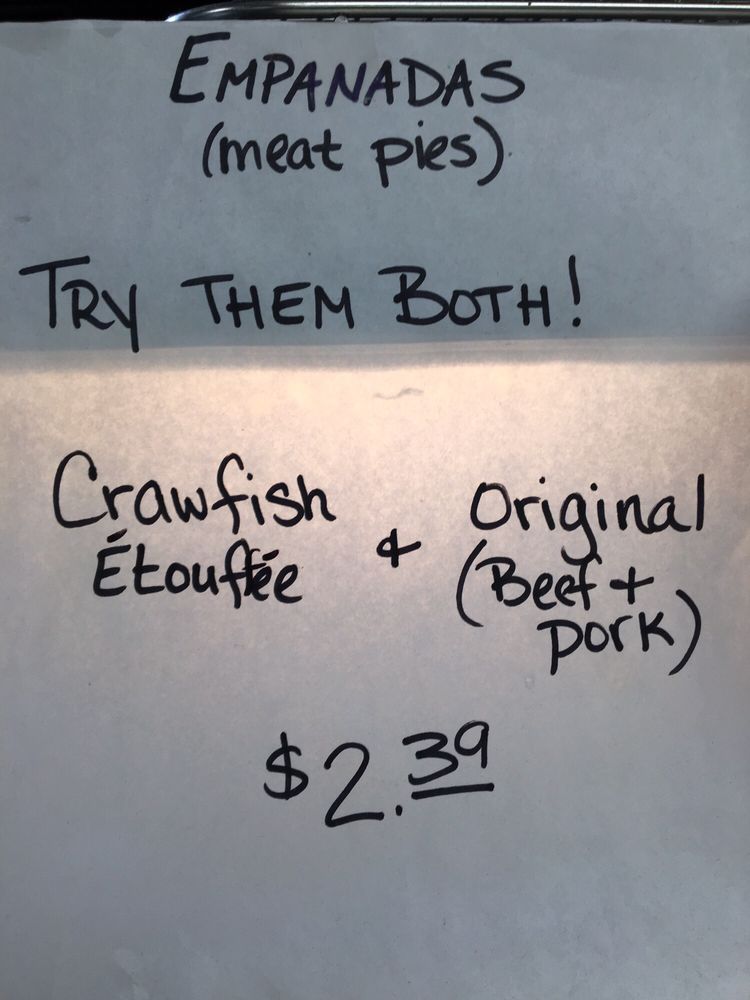 EMPANADAS
(meat pies)
TRY THEM BOTH!
Crawfish & Original
Étouffée (Beef +
pork)
$2.39